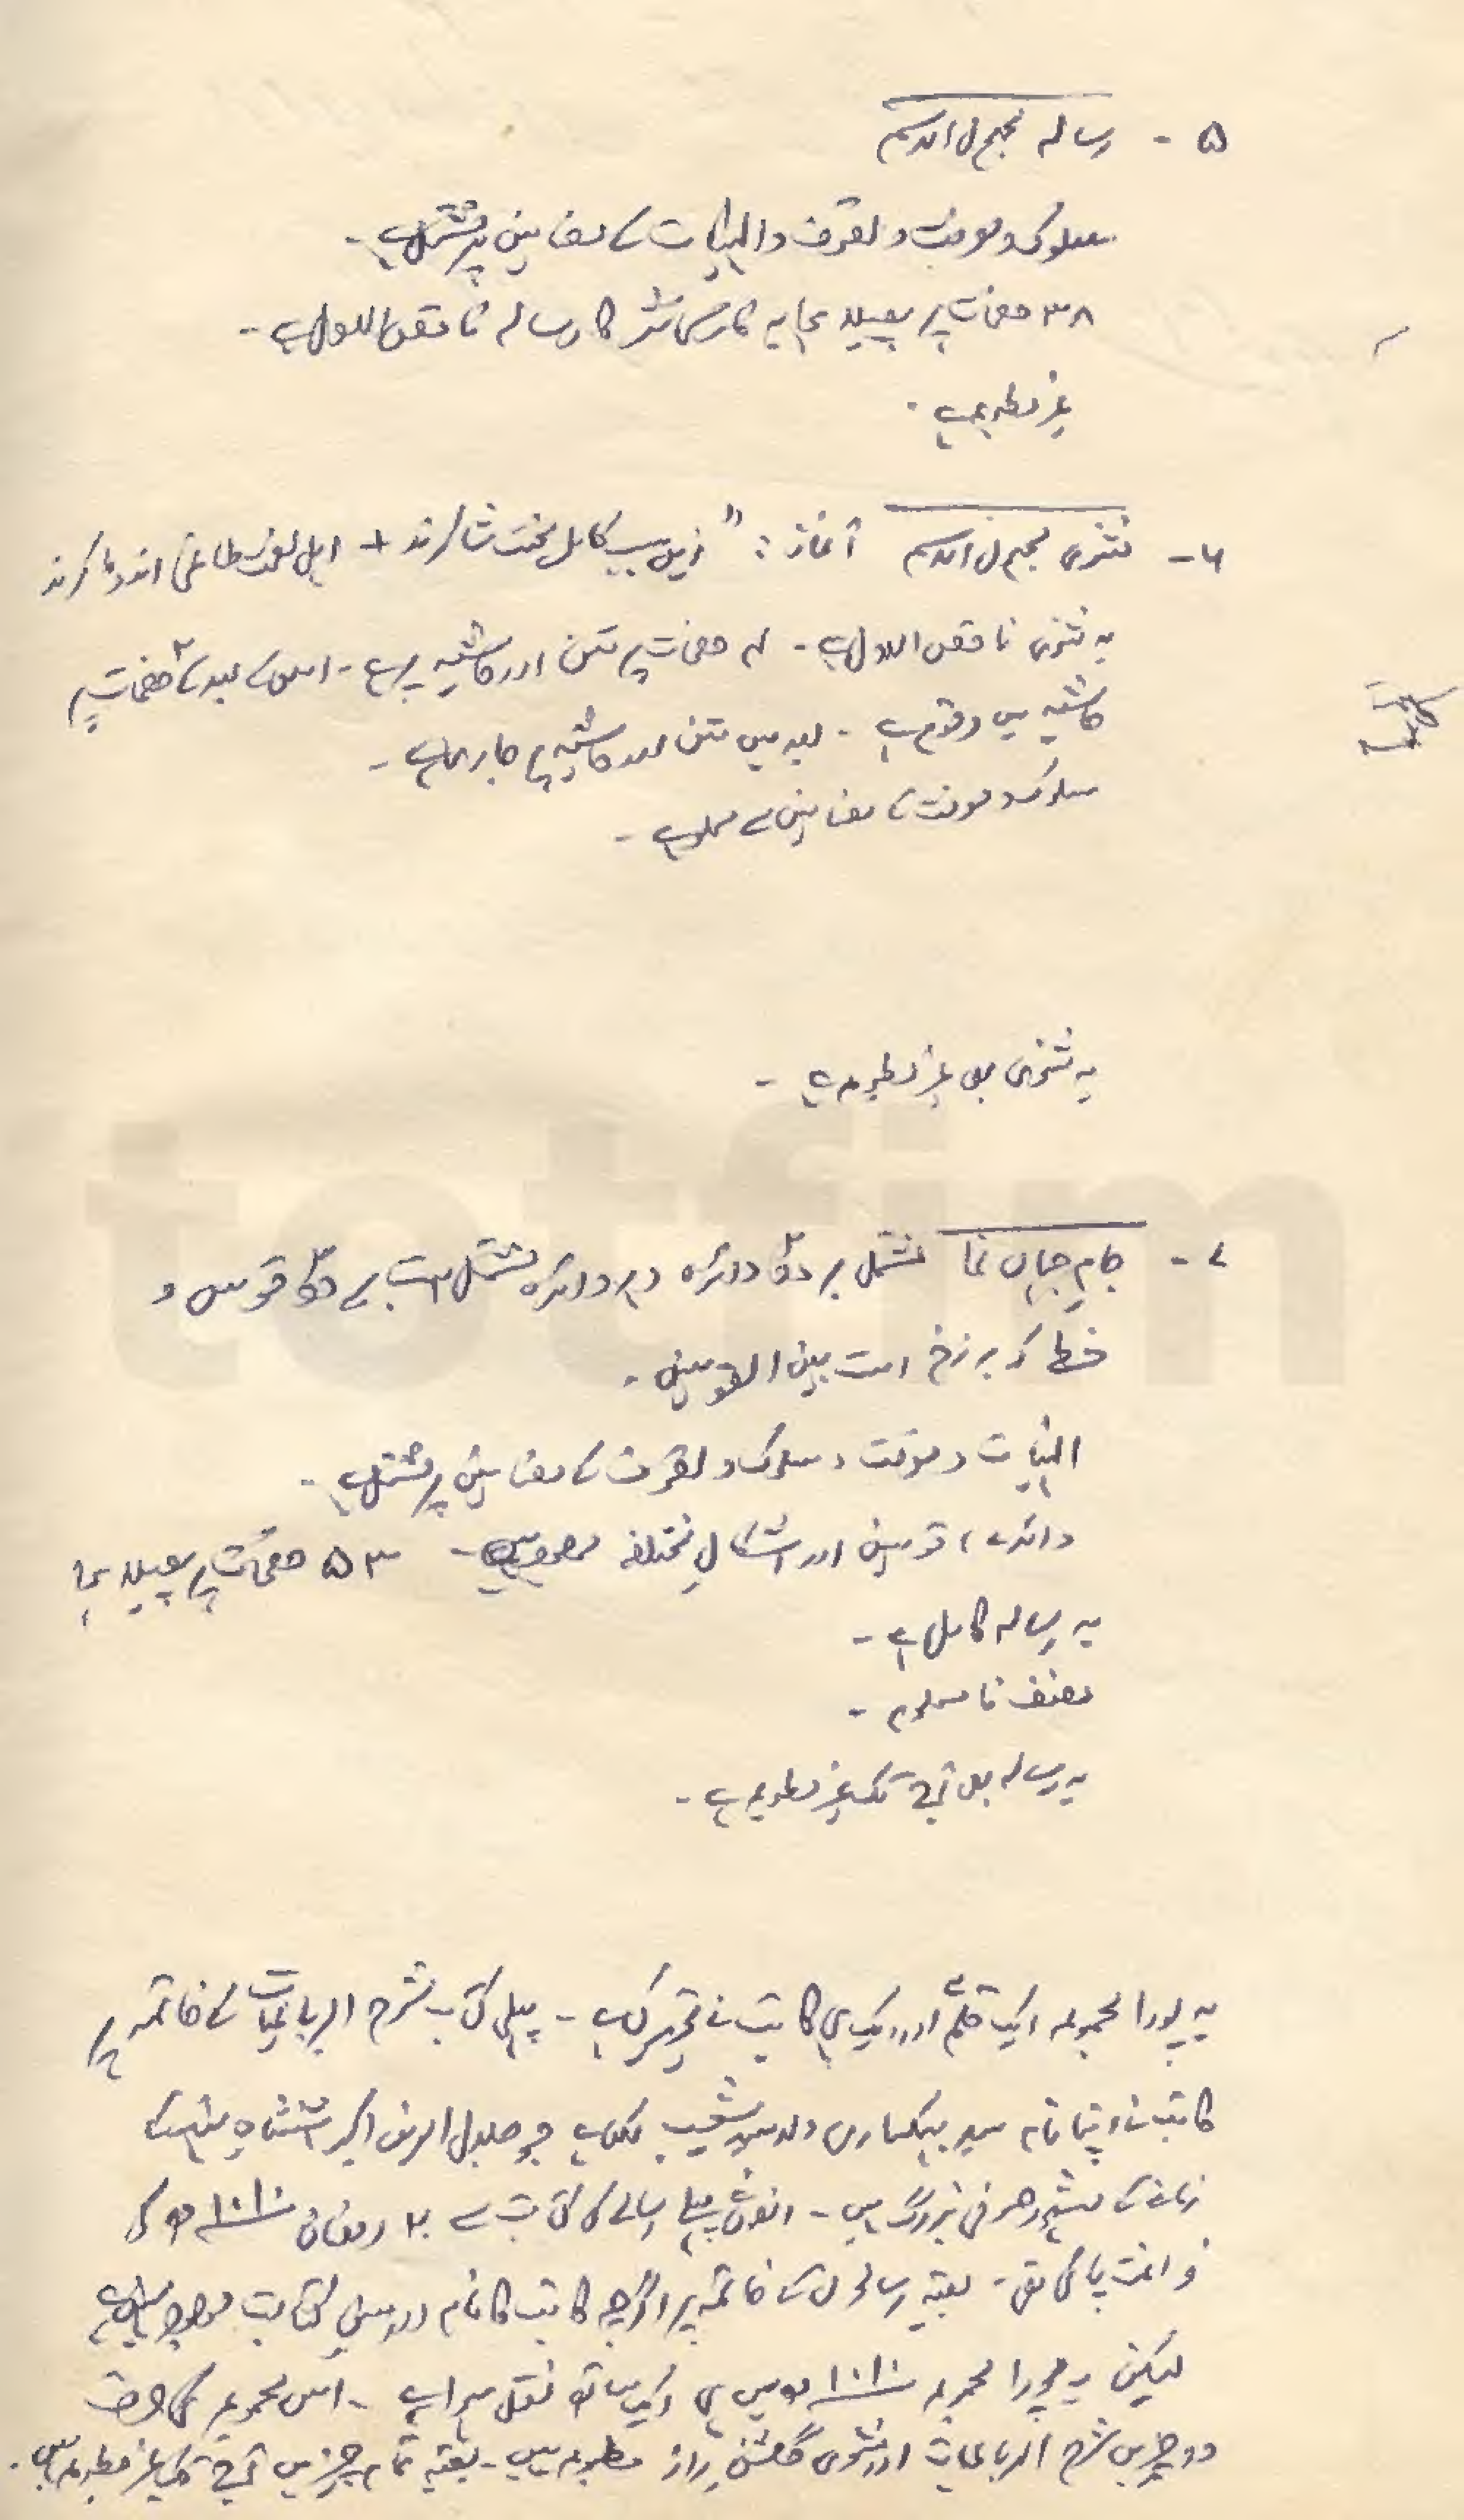 ۵ - رسالہ مجہول الاسم
سلوک و معرفت و تصوف و الہیات کے مضامین پر مشتمل ہے -
۳۸ صفحات پر پھیلا ہوا یہ فارسی نثر کا رسالہ ناقص الاول ہے -
غیر مطبوعہ ہے -
۶ - مثنوی مجہول الاسم آغاز : " زیں سبب کامل
یہ مثنوی ناقص الاول ہے - صفحات پر متن اور حاشیہ پر ہے - اس کے بعد کے ۲ صفحات پر
حاشیہ میں مرقوم ہے - بعد میں متن اور حاشیہ پر جاری ہے -
سلوک و معرفت کے مضامین سے مملو ہے -
یہ مثنوی بھی غیر مطبوعہ ہے -
۷ - جامِ جہاں نما مشتمل بر دو دائرہ و ہر دائرہ مشتمل است بر دو قوس و
خطے کہ برزخ است بین القوسین -
الہیات و معرفت و سلوک و تصوف کے مضامین پر مشتمل ہے -
دائرے، قوسین اور اشکالِ مختلفہ موجود ہیں - ۵۳ صفحات پر پھیلا ہوا
یہ رسالہ کامل ہے -
مصنف نامعلوم -
یہ رسالہ بھی آج تک غیر مطبوعہ ہے -
یہ پورا مجموعہ ایک قلم سے اور ایک ہی کاتب نے تحریر کی ہے - پہلی کتاب شرح الرباعیات کے خاتمہ پر
کاتب نے اپنا نام سید ولد سید شعیب لکھا ہے جو جلال الدین اکبر شہنشاہِ ہند کے
زمانے کے مشہور صوفی بزرگ ہیں - انھوں نے پہلے رسالے کی کتابت سے ۲۰ رمضان ۱۰۱۰ھ کو
فراغت پائی تھی - بقیہ رسالوں کے خاتمہ پر اگرچہ کاتب کا نام اور سنِ کتابت موجود نہیں ہے
لیکن یہ پورا مجموعہ ۱۰۱۰ھ میں ہی ایک ساتھ نقل ہوا ہے - اس مجموعہ کی صرف
دو چیزیں شرح الرباعیات اور مثنوی گلشنِ راز مطبوعہ ہیں - بقیہ تمام چیزیں آج تک غیر مطبوعہ ہیں -